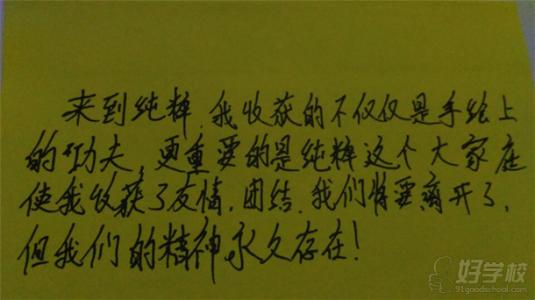 来到纯粹,我收获的不仅仅是手绘上
的功夫,更重要的是纯粹这个大家庭
使我收获了友情,团结,我们将要离开了,
但我们的精神永久存在!
好学校
91goodschool.com